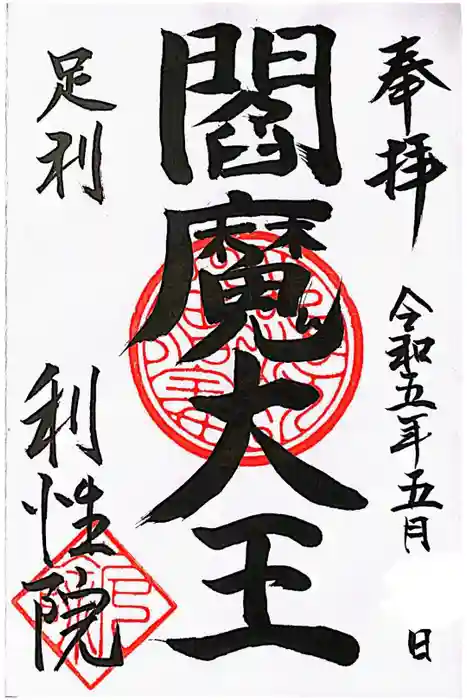 奉拝
令和五年五月 日
閻魔大王
足利
利性院